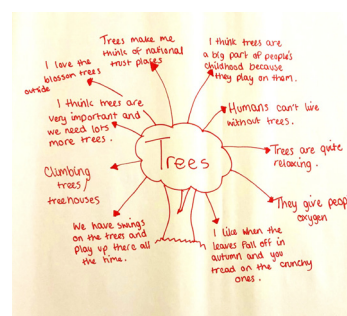 Trees make me
think of national
trust places
I think trees are
a big part of people's
childhood because
they play on them.
I love the
blossom trees
outside
I think trees are
very important and
we need lots
more trees.
Humans can't live
without trees.
Trees
Trees are quite
relaxing.
Climbing
trees /
treehouses
They give peop
oxygen
We have swings
on the trees and
play up there all
the time.
I like when the
leaves fall off in
autumn and you
tread on the crunchy
ones.